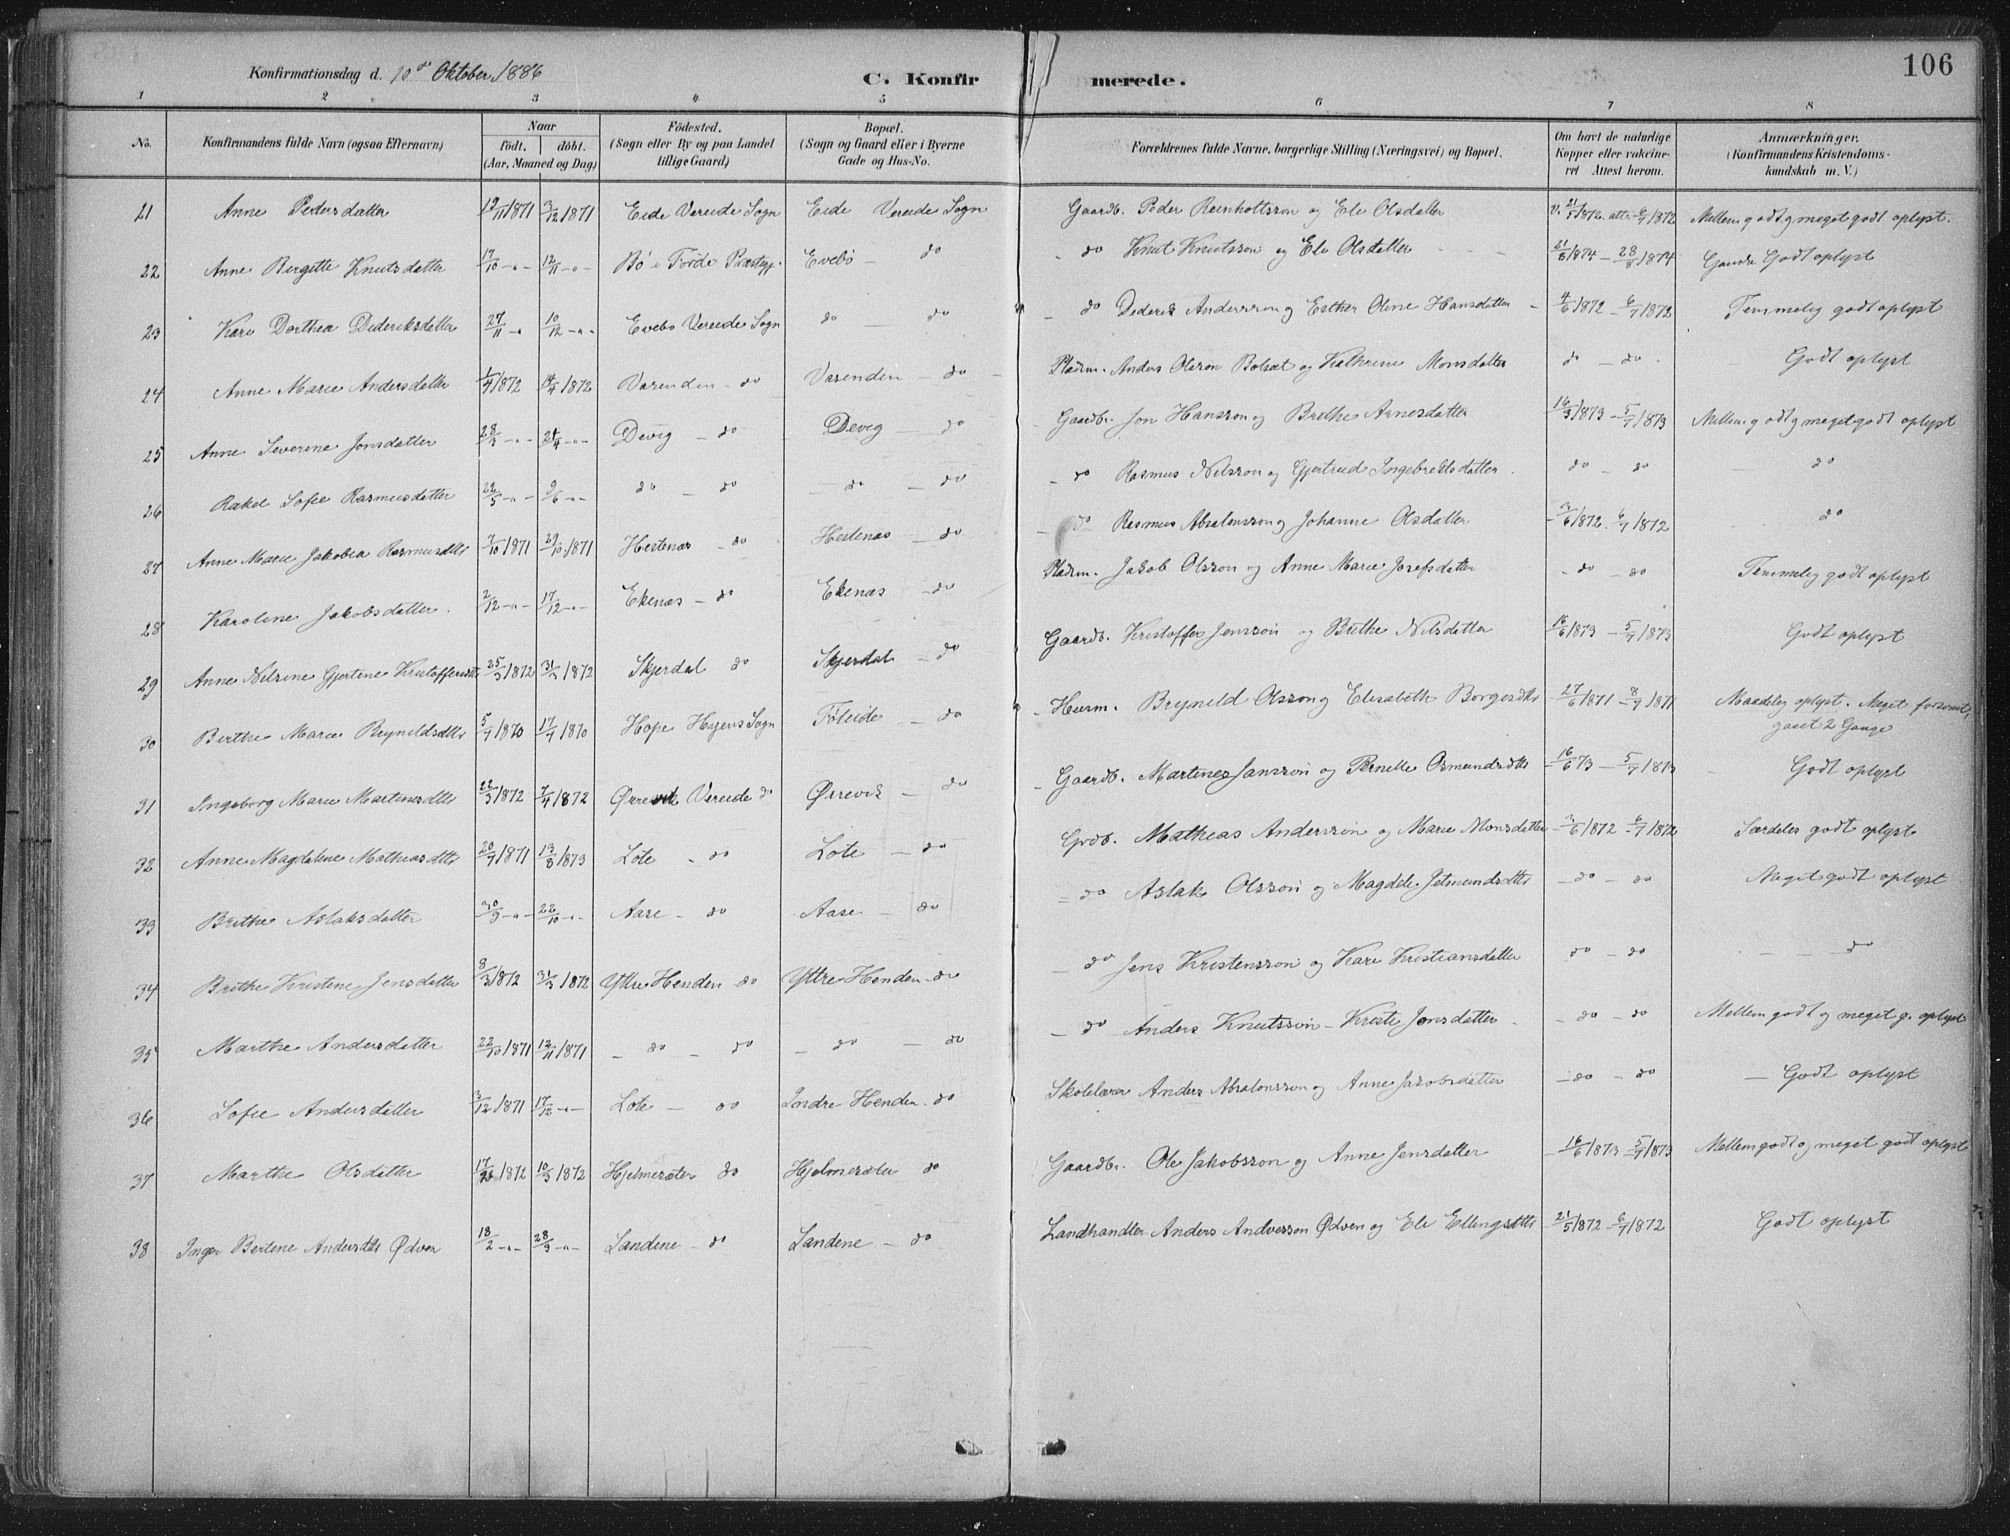 106
Konfirmationsdag d. 10de Oktober 1886
C. Konfirmerede.
1 2 3 4 5 6 7 8
No. Konfirmandens fulde Navn (ogsaa Efternavn) Naar födt. döbt. (Aar, Maaned og Dag) Födested. (Sogn eller By og paa Landet tillige Gaard) Bopæl. (Sogn og Gaard eller i Byerne Gade og Hus-No. Forældrenes fulde Navne, borgerlige Stilling (Næringsvei) og Bopæl. Om havt de naturlige Kopper eller vakcineret Attest herom. Anmærkninger. (Konfirmandens Kristendomskundskab m. V.)
21 Anne Pedersdatter 19/11 1871 3/12 1871 Eide Vereide Sogn Eide Vereide Sogn Gaardb. Peder Reinholtsson og Eli Olsdatter v. 21/5 1872 att. 6/7 1872 Mellem godt og meget godt oplyst.
22 Anne Bergitte Knutsdatter 17/10 -"- 12/11 -"- Bö i Förde Præstegj. Evebö - do - do Knut Knutsson og Eli Olsdatter 21/8 1874 - 28/8 1874 Ganske Godt oplyst
23 Kari Dorthea Dideriksdatter 27/11 -" 10/12 -"- Evebö Vereide Sogn do - do - do Diderik Andersson og Esther Oline Hansdatter - 4/6 1872 - 6/7 1872 Temmelig godt oplyst
24 Anne Marie Andersdatter 1/4 1872 14/4 1872 Varenden - do Varenden - do - Pladsm. Anders Olsson Bolsæt og Kathrine Monsdatter do - do Godt oplyst
25 Anne Severine Jonsdatter 28/3 -"- 21/4 -"- Devig - do Devig - do Gaardbr. Jon Hansson og Brithe Arnesdatter 16/3 1873 - 5/7 1873 Mellem godt og meget godt oplyst
26 Rakel Sofie Rasmusdatter 22/5 -"- 9/6 -"- do - do - do - do - do Rasmus Nilsson og Gjertrud Ingebretsdatter do - do do
27 Anne Marie Jakobea Rasmusdtr 7/10 1871 29/10 1871 Hestenæs - do Hestenæs - do - do Rasmus Absalonsson og Johanne Olsdatter - 3/6 1872. 6/7 1872 do
28 Karoline Jakobsdatter. 2/12 -"- 17/12 -"- Ekenæs - do Ekenæs - do Pladsm. Jakob Olsson og Anne Marie Josefsdatter - do - do Temmelig godt oplyst
29 Anne Nilsine Gjertine Kristoffersdtr 25/3 1872 31/3 1872 Skjerdal do Skjerdal - do Gaardb. Kristoffer Jensson og Brithe Nilsdatter 16/6 1873 - 5/7 1873 Godt oplyst
30 Brithe Marie Brynildsdtr 5/7 1870 17/7 1870 Hope Hogens Sogn Föleide - do - Husm. Brynild Olsson og Elisabeth Borgesdtr - 27/6 1871 - 8/7 1871 Maadelig oplyst. Meget forsømt,
gaaet 2 Gange
31 Ingeborg Marie Martinesdtr 22/3 1872 7/4 1872 Ørrevik Vereide do Ørrevik - do - Gaardb. Martines Jansson og Pernelle Osmundsdtr - 16/6 73 - 5/7 1873 Godt oplyst
32 Anne Magdalene Mathiasdtr 20/7 1871 13/8 1873 Lote - do Lote - do Grdb. Mathias Andersson og Marie Monsdatter - 3/6 1872 - 6/7 1872 Særdeles godt oplyst
33 Brithe Aslaksdatter 30/9 -"- 22/10 -"- Aase - do Aase - do - do Aslak Olsson og Magdeli Jetmundsdtr - do - do Meget godt oplyst
34 Brithe Kristine Jensdatter 8/3 1872 31/3 1872 Yttre Henden - do Yttre Henden - do - do Jens Kristensson og Kari Kristiansdatter do - do - - do
35 Marthe Andersdatter 22/10 1871 12/11 1871 - do - do - do - do - do Anders Knutsson - Kristi Jonsdatter - - do - do Mellem godt og meget g. oplyst
36 Sofie Andersdatter 3/12 1871 17/12 -"- Lote - do Indre Henden - do Skolelærer Anders Absalonsson og Anne Jakobsdatter - do - do - Godt oplyst
37 Marthe Olsdatter 17/2 1872 10/3 1872 Hjelmesæter do Hjelmesæter do Gaardbr. Ole Jakobsson og Anne Jensdatter - 16/6 1873 - 5/7 1873 Mellem godt og meget godt oplyst
38 Inger Bertine Andersdtr Ødven 18/2 -"- 28/3 -"- Sandene - do Sandene - do Landhandler Anders Andersson Ødven og Eli Ellingsdtr 21/5 1872 - 6/7 1872 Godt oplyst